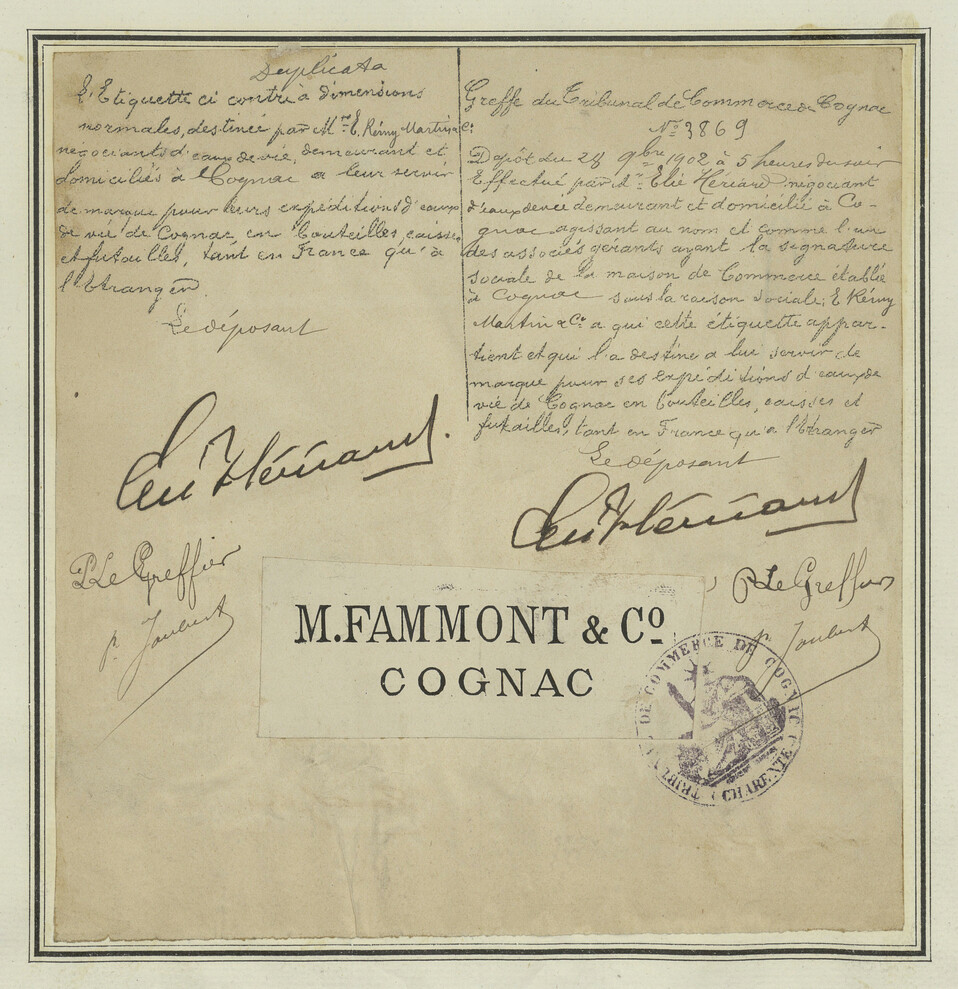 Duplicata
L'Etiquette ci contre à dimensions
normales, destinée par MM. E. Rémy Martin & Cie
négociants d'eaux de vie, demeurant et
domiciliés à Cognac a leur servir
de marque pour leurs expéditions d'eaux
de vie de Cognac en bouteilles, caisses
et futailles, tant en France qu'à
l'Etranger
Le déposant
P Le Greffier
P. Joubert
Greffe du Tribunal de Commerce de Cognac
No 3869
Dépôt du 28 9bre 1902 à 5 heures du soir
Effectué par Mr Elie Hériard négociant
d'eaux de vie demeurant et domicilié à Co-
gnac agissant au nom et comme l'un
des associés gérants ayant la signature
sociale de la maison de Commerce établie
à Cognac sous la raison sociale; E Rémy
Martin & Ce a qui cette étiquette appar-
tient et qui l'a destine a lui servir de
marque pour ses expéditions d'eaux de
vie de Cognac en bouteilles, caisses et
futailles, tant en France qu'a l'Etranger
Le déposant
P Le Greffier
P. Joubert
M. FAMMONT & Co
COGNAC
TRIBUNAL DE COMMERCE DE COGNAC (CHARENTE)